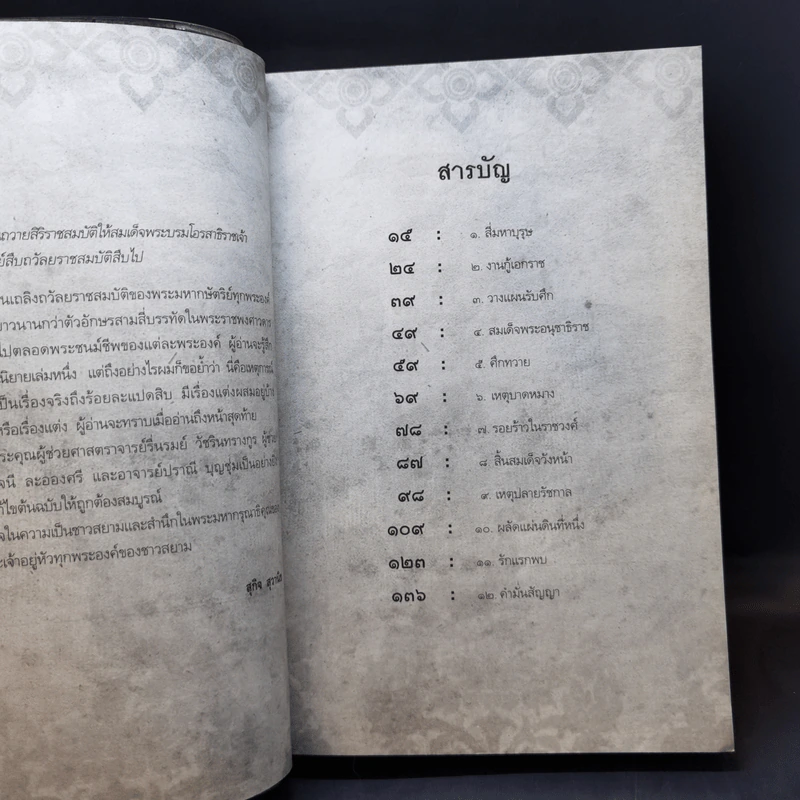 ถวายสิริราชสมบัติให้สมเด็จพระบรมโอรสาธิราชเจ้า
สืบถวัลยราชสมบัติสืบไป
นเถลิงถวัลยราชสมบัติของพระมหากษัตริย์ทุกพระองค์
าวนานกว่าตัวอักษรสามสี่บรรทัดในพระราชพงศาวดาร
ปตลอดพระชนม์ชีพของแต่ละพระองค์ ผู้อ่านจะรู้สึก
นิยายเล่มหนึ่ง แต่ถึงอย่างไรผมก็ขอย้ำว่า นี่คือเหตุการณ์
เป็นเรื่องจริงถึงร้อยละแปดสิบ มีเรื่องแต่งผสมอยู่บ้าง
หรือเรื่องแต่ง ผู้อ่านจะทราบเมื่ออ่านถึงหน้าสุดท้าย
ระคุณผู้ช่วยศาสตราจารย์รื่นรมย์ วัชรินทรางกูร ผู้ช่วย
จนี ละอองศรี และอาจารย์ปราณี บุญชุ่มเป็นอย่างยิ่ง
ก้ไขต้นฉบับให้ถูกต้องสมบูรณ์
จในความเป็นชาวสยามและสำนึกในพระมหากรุณาธิคุณของ
ะเจ้าอยู่หัวทุกพระองค์ของชาวสยาม
สุกิจ
สารบัญ
๑๕ : ๑. สี่มหาบุรุษ
๒๔ : ๒. งานกู้เอกราช
๓๙ : ๓. วางแผนรับศึก
๔๙ : ๔. สมเด็จพระอนุชาธิราช
๕๙ : ๕. ศึกทวาย
๖๙ : ๖. เหตุบาดหมาง
๗๘ : ๗. รอยร้าวในราชวงศ์
๘๗ : ๘. สิ้นสมเด็จวังหน้า
๙๘ : ๙. เหตุปลายรัชกาล
๑๐๙ : ๑๐. ผลัดแผ่นดินที่หนึ่ง
๑๒๓ : ๑๑. รักแรกพบ
๑๓๖ : ๑๒. คำมั่นสัญญา